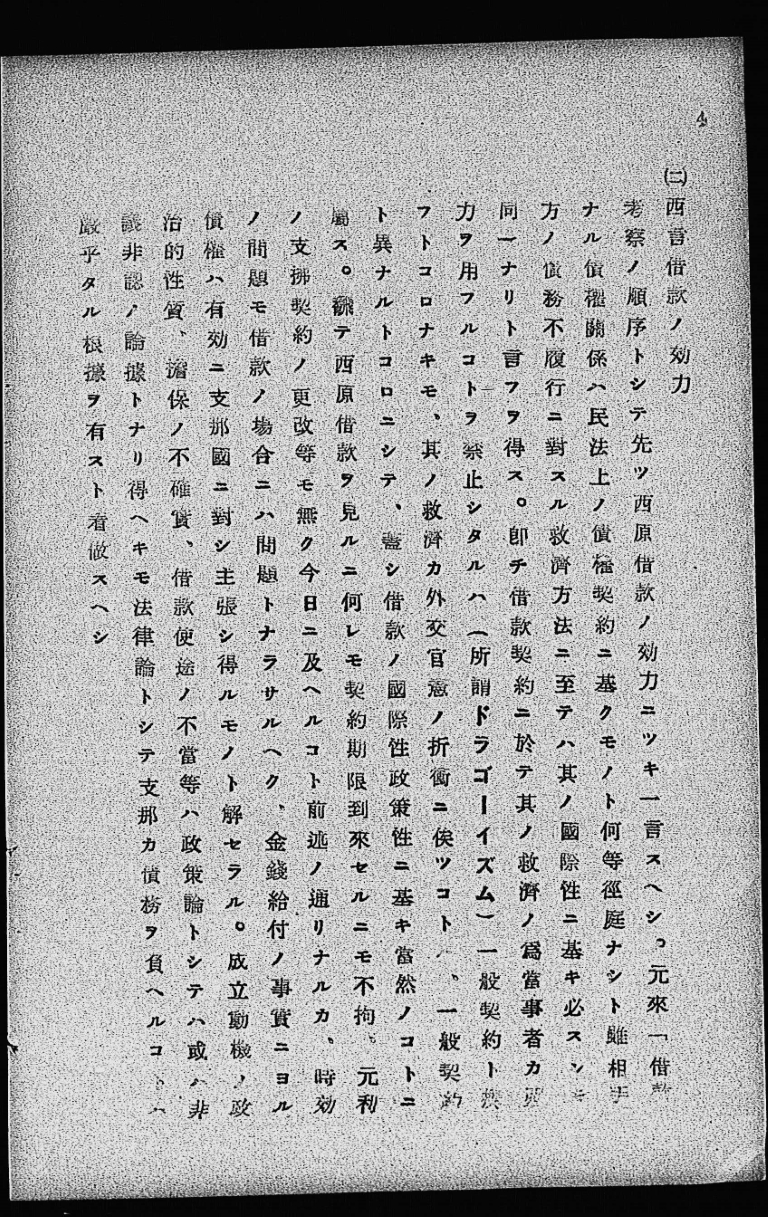 4
㈡西言借款ノ効力
考察ノ順序トシテ先ツ西原借款ノ効力ニツキ一言スヘシ。元來「借款
ナル債權關係ハ民法上ノ債權契約ニ基クモノト何等徑庭ナシト雖相手
方ノ債務不履行ニ對スル救濟方法ニ至テハ其ノ國際性ニ基キ必スシモ
同一ナリト言フヲ得ス。卽チ借款契約ニ於テ其ノ救濟ノ爲當事者カ
力ヲ用フルコトヲ禁止シタルハ(所謂ドラゴーイズム)一般契約ト
フトコロナキモ、其ノ救濟カ外交官憲ノ折衝ニ俟ツコトハ、一般契約
ト異ナルトコロニシテ、蓋シ借款ノ國際性政策性ニ基キ當然ノコトニ
屬ス。飜テ西原借款ヲ見ルニ何レモ契約期限到來セルニモ不拘、元利
ノ支拂契約ノ更改等モ無ク今日ニ及ヘルコト前述ノ通リナルカ、時効
ノ問題モ借款ノ場合ニハ問題トナラサルヘク、金錢給付ノ事實ニヨル
債權ハ有効ニ支那國ニ對シ主張シ得ルモノト解セラル。成立動機ノ政
治的性質、擔保ノ不確實、借款使途ノ不當等ハ政策論トシテハ或ハ非
議非認ノ論據トナリ得ヘキモ法律論トシテ支那カ債務ヲ負ヘルコトハ
嚴乎タル根據ヲ有スト看做スヘシ